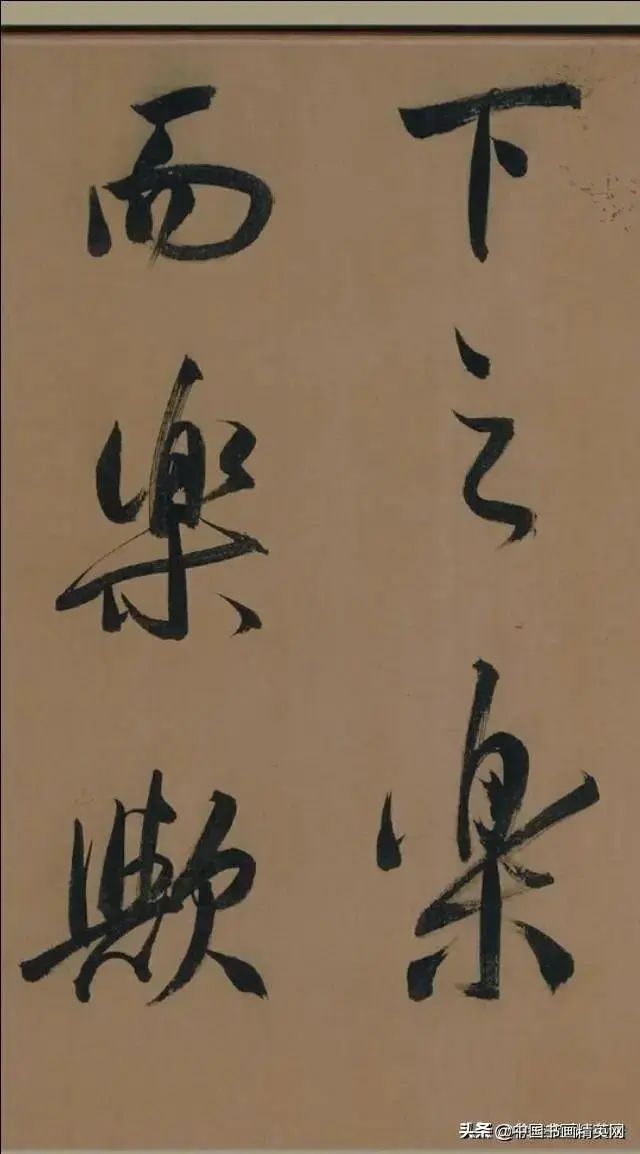 下之樂
而樂歟
头条 @中国书画精英网